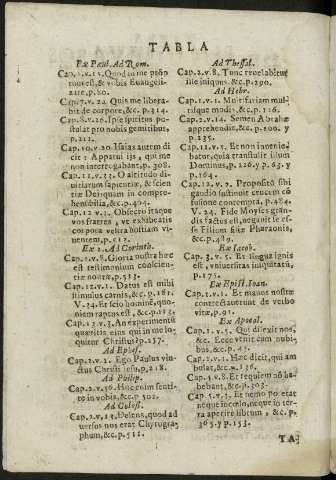 TABLA
Ex Paul. Ad Rom.
Cap. 1. v. 15. Quod in me promptum est, & vobis Euangelizare, p. 80.
Cap. 7. v. 24. Quis me liberabit de corpore, &c. p. 314.
Cap. 8. v. 26. Ipse spiritus postulat pro nobis gemitibus, p. 212.
Cap. 10. v. 20. Isaias autem dicit: Apparui ijs, qui me non interrogabant, p. 308.
Cap. 11. v. 33. O altitudo diuitiarum sapientiæ, & scientiæ Dei: quam incomprehensibilia, &c. p. 404.
Cap. 12. v. 1. Obsecro itaque vos fratres, vt exhibeatis corpora vestra hostiam viuentem, p. 112.
Ex 1. Ad Corinth.
Cap. 1. v. 8. Gloria nostra hæc est testimonium conscientiæ nostræ, p. 513.
Cap. 12. v. 1. Datus est mihi stimulus carnis, &c. p. 182.
V. 24. Et scio hominé, quoniam raptus est, &c. p. 113.
Cap. 13. v. 3. An experimentú quæritis, eius qui in me loquitur Christus? p. 257.
Ad Ephes.
Cap. 3. v. 1. Ego Paulus vinctus Christi Iesu, p. 218.
Ad Philip.
Cap. 2. v. 56. Hoc enim sentite in vobis, &c. p. 502.
Ad Coloss.
Cap. 2. v. 14. Delens, quod aduersus nos erat Chyrographum, &c. p. 511.
Ad Thessal.
Cap. 2. v. 8. Tunc reuelabitur ille iniquus, &c. p. 290.
Ad Hebr.
Cap. 1. v. 1. Multifariam multisque modis, &c. p. 176.
Cap. 2. v. 14. Semen Abrahæ apprehendis, &c. p. 100. y p. 235.
Cap. 11. v. 5. Et non inueniebatur, quia transtulit illum Dominus, p. 226. y p. 63. y p. 164.
Cap. 12. v. 2. Proposito sibi gaudio sustinuit crucem confusione contempta, p. 484.
V. 24. Fide Moyses grandis factus est, negauit se esse Filium filiæ Pharaonis, &c. p. 489.
Ex Iacob.
Cap. 3. v. 5. Et lingua ignis est, vniuersitas iniquitatú, p. 175.
Ex Epist. Ioan.
Cap. 1. v. 1. Et manus nostræ contrectauerunt de verbo vitæ, p. 91.
Ex Apocal.
Cap. 1. v. 5. Qui dilexit nos, &c. Ecce venit cum nubibus, &c. p. 43.
Cap. 2. v. 1. Hæc dicit, qui ambulat, &c. p. 136.
Cap. 4. v. 8. Et requiem nó habebant, &c. p. 203.
Cap. 5. v. 3. Et nemo poterat neque in cœlo, neque in terra aperire librum, & c. p. 365. y p. 153.
TA-